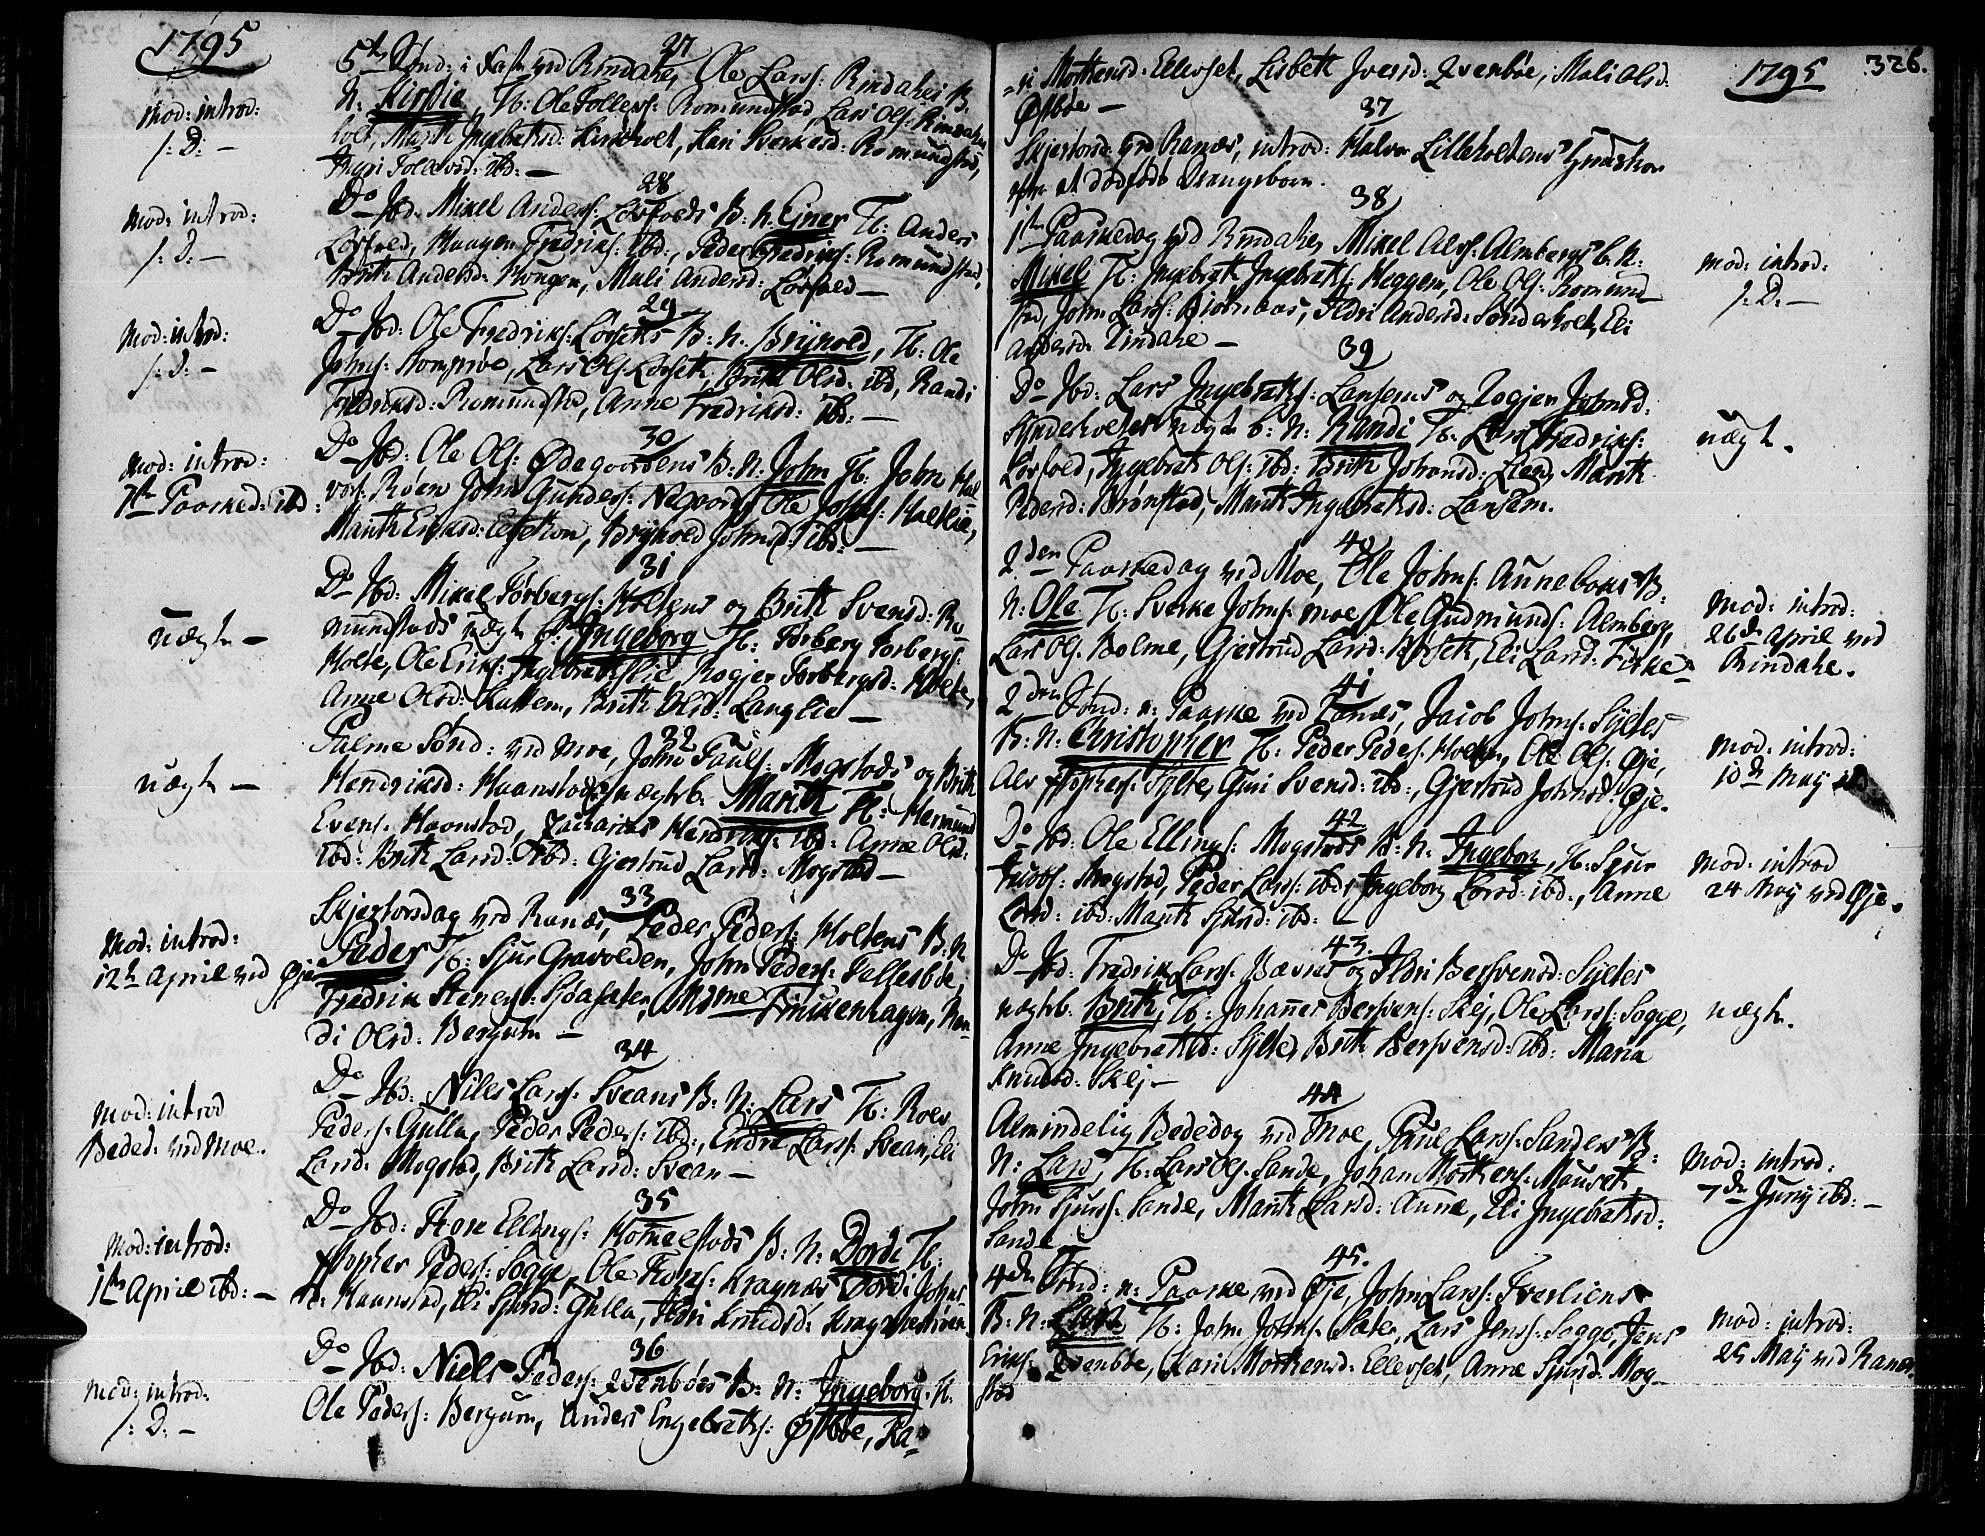 1795
27
5te Sønd: i Fast. ved Rindahl, Ole Larss: Rindahls B.
N. Kirstie, T: Ole Tollefs: Romundstad, Lars Ols: Rindahls
Marit Ingebretsd: Kirkholt, Kari Sverkesd: Romundstad,
Guri Tollefsd: ibd: —
Mod: introd:
/: D: —
28
Do Ibd: Mikel Anders: Løsfolds B: N. Ejner T: Anders
Løsfold, Haagen Fredriks: ibd:, Peder Fredriks: Romundstad,
Brith Andersd: Hougen, Mali Andersd: Løsfold —
Mod: introd:
/: D: —
29
Do Ibd: Ole Fredriks: Løsseths B: N. Brynold, T: Ole
Johns: Stomprøe, Lars Ols: Løseth, Brith Olsd: ibd, Randi
Fredriksd: Romundstad, Anne Fredriksd: ibd: —
Mod: introd:
/: D: —
30
Do Ibd: Ole Ols: Ødegaardens B: N. John T: John Hal
vors: Røen John Gunders: Negaard, Ole Johns:
Marith Eriksd: Brynold Johnsd: ibd: —
Mod: introd:
1ste Paasked: ibd:
31
Do Ibd: Mikel Torbergs: Holtens og Brith Svensd: Ro
mundstads uægte b: Ingeborg T: Torberg Torbergs:
Holte, Ole Eriks: Ingebretslie, Rogjer Torbergsd: Holte,
Anne Olsd: Brith Olsd: Langlie —
uægte —
32
Palme Sønd: ved Moe, John Pauls: Mogstads og Brith
Hendriksd: Haanstads uægteb. Marith T: Hermund
Evens: Haanstad, Zacharias Hendriks: ibd: Anne Olsd:
ibd: Brith Larsd: ibd: Gjertrud Larsd: Mogstad —
uægte —
33
Skjertorsdag ved Ranæs, Peder Peders: Holtens B: N.
Peder T: Sjur Gravolden, John Peders: Tellesbøe,
Fredrik Steners: Sjøasæter, Mdme Finckenhagen, Ran-
di Olsd: Bergum —
Mod: introd:
12te April ved Øje
34
Do Ibd: Nills Larss: Sveans B: N: Lars T: Roes
Peders: Gulla, Peder Peders: ibd:, Endre Larss: Svean, Eli
Larsd: Mogstad, Brith Larsd: Svean —
Mod: introd
Beded: ved Moe.
35
Do Ibd: Tore Ellings: Honnelstads B: N: Dordi T:
Xstopher Peders: Sogge, Ole Tores: Kragnæs Dordi Johns-
d: Haanstad, Eli Sjursd: Gulla, Ildri Knudsd:
Mod: introd:
1ste April ibd: —
36
Do Ibd: Niels Peders: Qvenbøes B: N: Ingeborg. T.
Ole Peders: Bergum, Anders Engebrets: Østbøe, Ka-
Mod: introd:
/: D: —
1795 326.
ri Mortensd: Ellevset, Lisbeth Iversd: Qvenbøe, Mali Olsd.
Østbøe —
37
Skjertorsd. ved Ranæs, introd: Halvor Lilleholtens Hustroe
efter et dødfødt Drængebarn.
38
1ste Paaskedag ved Rindahl, Mikel Alss: Almbergs b. N:
Mikel T: Ingebreth Ingebrets: Heggem, Ole Ols: Romund
stad, John Larss: Biørnaas, Ildri Andersd: Sønderholt, Eli
Andersd: Rindahl —
mod: introd:
/: D: —
39
Do Ibd: Lars Ingebretss: Lansems og Rogjen Johnsd:
uægte b: N: Randi T: Lars Fredriks:
Løsfold, Ingebret Ols: ibd: Brith Johansd: Marith
Pedersd: Brønstad, Marith Ingebretsd: Lansem.
uægte.
40
2den Paaskedag ved Moe, Ole Johns: Aunebaks B:
N: Ole T: Sverke Johns: moe, Ole Gudmunds: Almberg,
Lars Ols. Bolme, Gjertrud Larsd: Eli Larsd: Fiske
Mod: introd:
26de April ved
Rindahl.
41
2den Sønd: n: Paaske ved Ranæs, Jacob Johns: Syltes
B: N: Christopher T: Peder Peders: Holten, Ole Ols: Øje,
Als Xstophers: Sylte, Guri Svensd: ibd:, Gjertrud Johnsd: Øje.
Mod: introd:
10de Maij ibd
42
Do Ibd: Ole Ellings: Mogstads B: N: Ingeborg, T: Sjur
Mogstad, Peder Larss: ibd: Ingeborg Larsd: ibd:, Anne
Larsd: ibd: Marith Sjursd: ibd:
Mod: introd
24 Maij ved Øje.
43.
Do Ibd: Fredrik Larss: Bævres og Ildri Bersvensd: Syltes
uægteb. Brith, T: Johannes Bersvens: Skej, Ole Larss: Sogge,
Anne Ingebretsd: Sylte, Brith Bersvensd: ibd: Maria
Knudsd: Skej —
uægte.
44
Almindelig Bededag ved Moe, Paul Larss: Sandes B:
N: Lars, T: Lars Ols: Sande, Johan Mortens: Mauset,
John Sjurss: Sande, Marith Larsd: Aune, Eli Ingebretsd:
Sande
Mod: introd:
7de Junij ibd: —
45.
4de Sønd: n: Paaske ved Øje, John Larss: Tverliens
B: N: Lars T: John Johns: Sæter, Lars Jenss: Sogge, Jens
Eriks: Qvenbøe, Kari Mortensd: Ellevset, Anne Sjursd: Mog-
stad
Mod: introd:
25 Maij ved Ranæs.